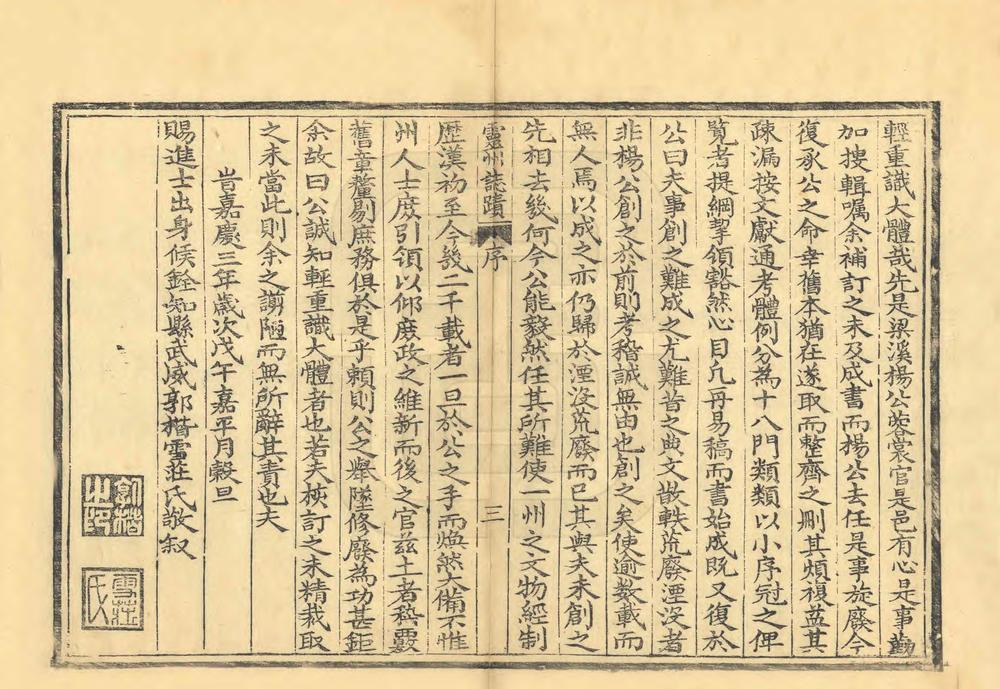 輕重識大體哉先是梁溪楊公葵裳官是邑有心是事勤
加搜輯囑余補訂之未及成書而楊公去任是事旋廢今
復承公之命幸舊本猶在遂取而整齊之刪其煩複益其
疎漏按文獻通考體例分為十八門類類以小序冠之俾
覽者提綱挈領豁然心目凢再易稿而書始成旣又復於
公曰夫事創之難成之尤難昔之典文散軼荒廢湮沒者
非楊公創之於前則考稽誠無由也創之矣使逾數載而
無人焉以成之亦仍歸於湮沒荒廢而已其與夫未創之
先相去幾何今公能毅然任其所難使一州之文物經制
靈州誌蹟 序 三
歷漢初至今幾二千載者一旦於公之手而煥然大備不惟
州人士庶引領以仰庶政之維新而後之官茲土者稽覈
舊章釐剔庶務俱於是乎賴則公之舉墜修廢為功甚鉅
余故曰公誠知輕重識大體者也若夫校訂之未精裁取
之未當此則余之謭陋而無所辭其責也夫
旹嘉慶三年歲次戊午嘉平月穀旦
賜進士出身候銓知縣武威郭楷雪莊氏敬叙
郭楷之印
雪莊氏